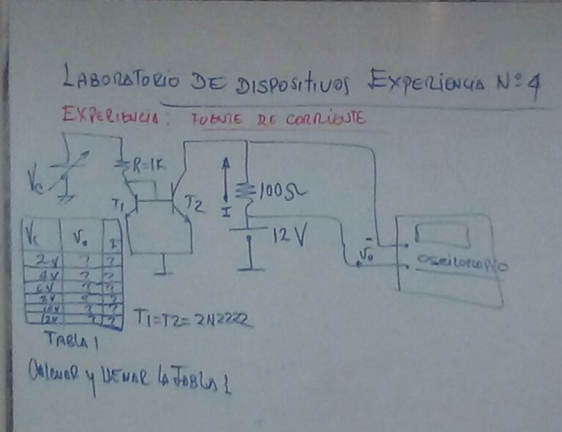 LABORATORIO DE DISPOSITIVOS EXPERIENCIA Nº4
EXPERIENCIA: FUENTE DE CORRIENTE
Vc
R=1K
T1
T2
I
100Ω
12V
- Vo
OSCILOSCOPIO
Vc Vo I
2V ? ?
4V ? ?
6V ? ?
8V ? ?
10V ? ?
12V ? ?
TABLA 1
T1=T2=2N2222
y LLENAR LA TABLA 1